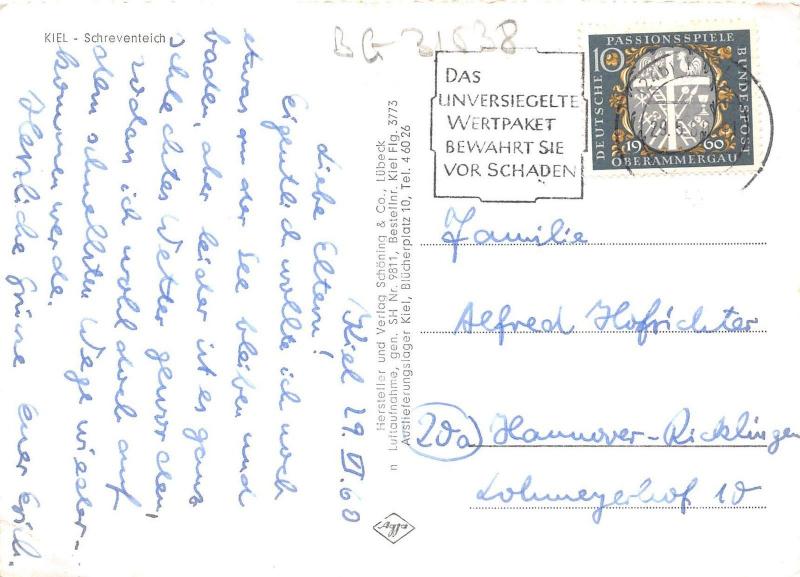 KIEL - Schreventeich
BG-31838
DAS
UNVERSIEGELTE
WERTPAKET
BEWAHRT SIE
VOR SCHADEN
10
PASSIONSSPIELE
DEUTSCHE
BUNDESPOST
1960
OBERAMMERGAU
Kiel 29. VI. 60
Liebe Eltern!
Eigentlich wollte ich noch
etwas an der See bleiben und
baden, aber leider ist es ganz
schlechtes Wetter geworden,
sodass ich wohl doch auf
dem schnellsten Wege wieder-
kommen werde.
Herzliche Grüsse euer Erich.
Hersteller und Verlag Schöning & Co., Lübeck
n Luftaufnahme, gen. SH Nr. 9811, Bestellnr. Kiel Flg. 3773
Auslieferungslager Kiel, Blücherplatz 10, Tel. 4 60 26
Agfa
Familie
Alfred Hofrichter
20a Hannover-Ricklingen
Lohmeyerhof 10